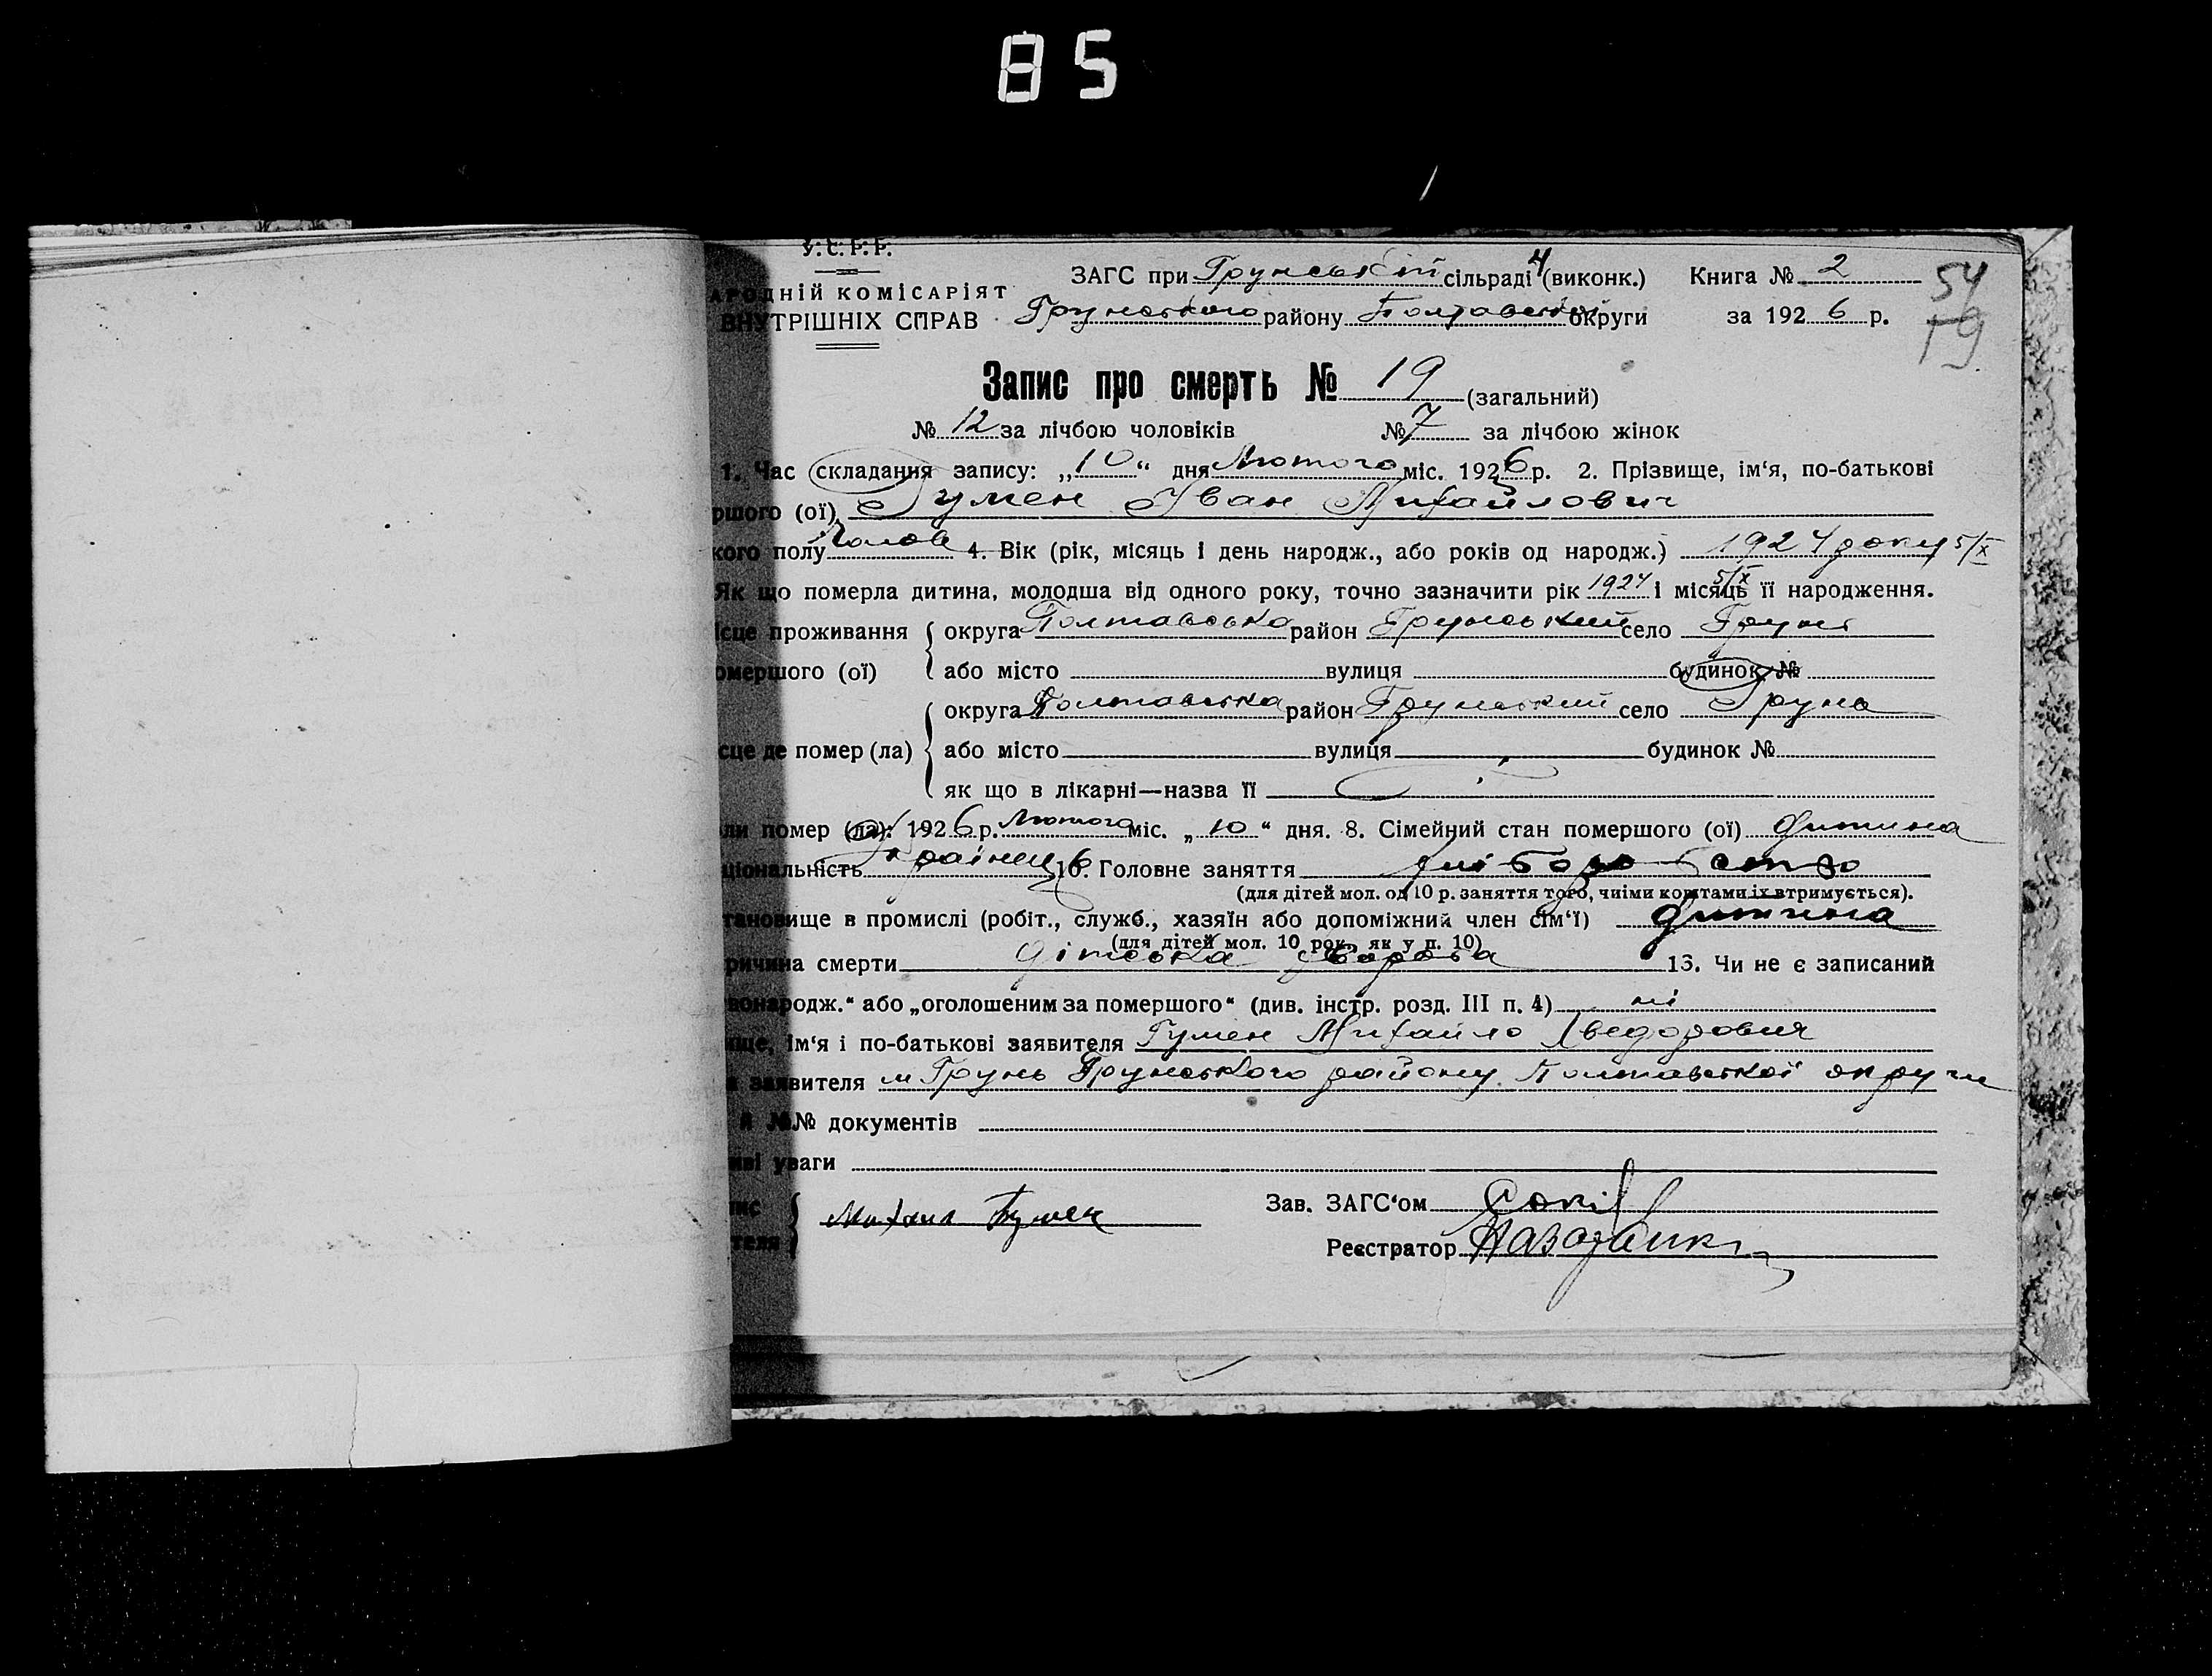 85
У.С.Р.Р.
АРОДНІЙ КОМІСАРІЯТ
ВНУТРІШНІХ СПРАВ
ЗАГС при Грунській сільраді (виконк.) Книга № 2
54
Грунського району Полтавської округи за 1926 р.
19
Запис про смерть № 19 (загальний)
№ 12 за лічбою чоловіків № 7 за лічбою жінок
1. Час складання запису: „10“ дня Лютого міс. 1926 р. 2. Прізвище, ім‘я, по-батькові
ршого (ої) Гумен Іван Михайлович
кого полу Чолов 4. Вік (рік, місяць і день народж., або років од народж.) 1924 року 5/X
Як що померла дитина, молодша від одного року, точно зазначити рік 1924 і місяць 5/X її народження.
ісце проживання округа Полтавська район Грунський село Грунь
омершого (ої) або місто вулиця будинок №
округа Полтавська район Грунський село Грунь
сце де помер (ла) або місто вулиця будинок №
як що в лікарні—назва її
ли помер (ла): 1926 р. Лютого міс. „10“ дня. 8. Сімейний стан помершого (ої) дитина
ціональність Українець 10. Головне заняття хліборобство
(для дітей мол. од 10 р. заняття того, чиїми коштами їх втримується).
тановище в промислі (робіт., служб., хазяїн або допоміжний член сім‘ї) дитина
(для дітей мол. 10 рок. як у п. 10)
ричина смерти дітська хвороба 13. Чи не є записаний
вонародж.“ або „оголошеним за помершого“ (див. інстр. розд. III п. 4) ні
ище, ім‘я і по-батькові заявителя Гумен Михайло Хведорович
заявителя м Грунь Грунського району Полтавської округи
й №№ документів
иві уваги
пис Михаил Гумен Зав. ЗАГС‘ом
теля Реєстратор